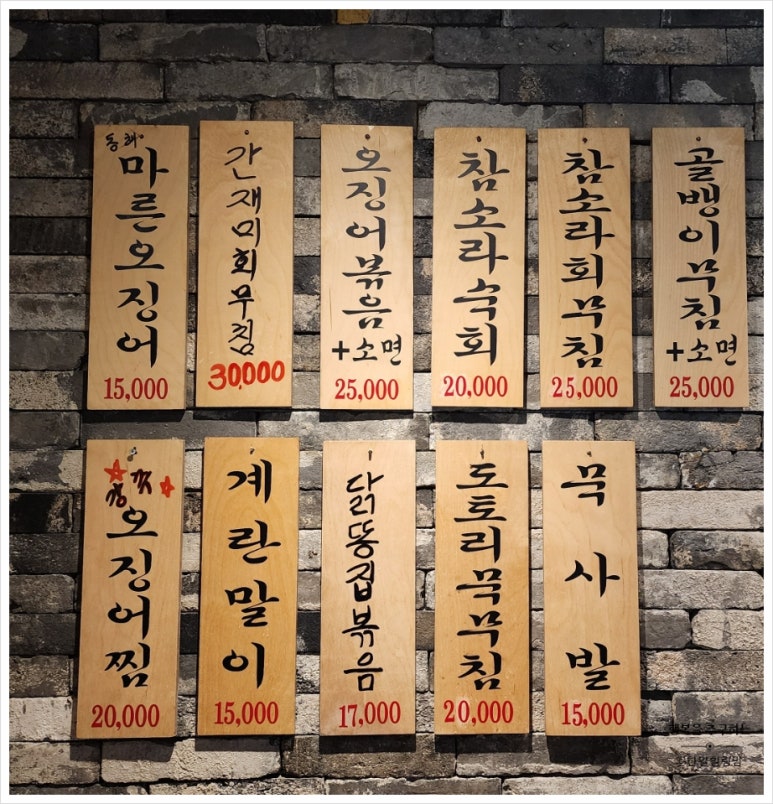 동해
마른오징어
15,000
간재미회무침
30,000
오징어볶음
+소면
25,000
참소라숙회
20,000
참소라회무침
25,000
골뱅이무침
+소면
25,000
오징어찜
20,000
계란말이
15,000
닭똥집볶음
17,000
도토리묵무침
20,000
묵사발
15,000